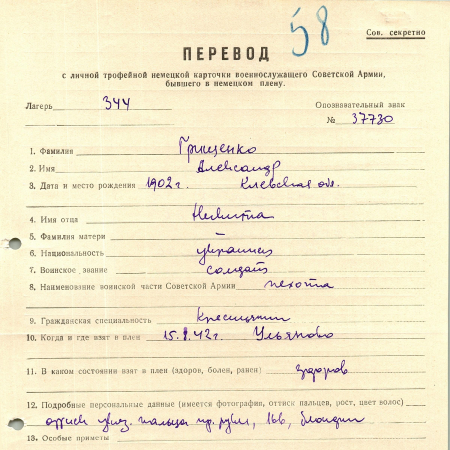 58
Сов. секретно
ПЕРЕВОД
с личной трофейной немецкой карточки военнослужащего Советской Армии,
бывшего в немецком плену.
Лагерь 344 Опознавательный знак
№ 37730
1. Фамилия Грищенко
2. Имя Александр
3. Дата и место рождения 1902 г. Киевская обл.
4. Имя отца Никита
5. Фамилия матери –
6. Национальность украинец
7. Воинское звание солдат
8. Наименование воинской части Советской Армии пехота
9. Гражданская специальность Крестьянин
10. Когда и где взят в плен 15.8.42г. Ульяново
11. В каком состоянии взят в плен (здоров, болен, ранен) здоров
12. Подробные персональные данные (имеется фотография, оттиск пальцев, рост, цвет волос)
оттиск указ. пальца пр. руки, 166, блондин
13. Особые приметы